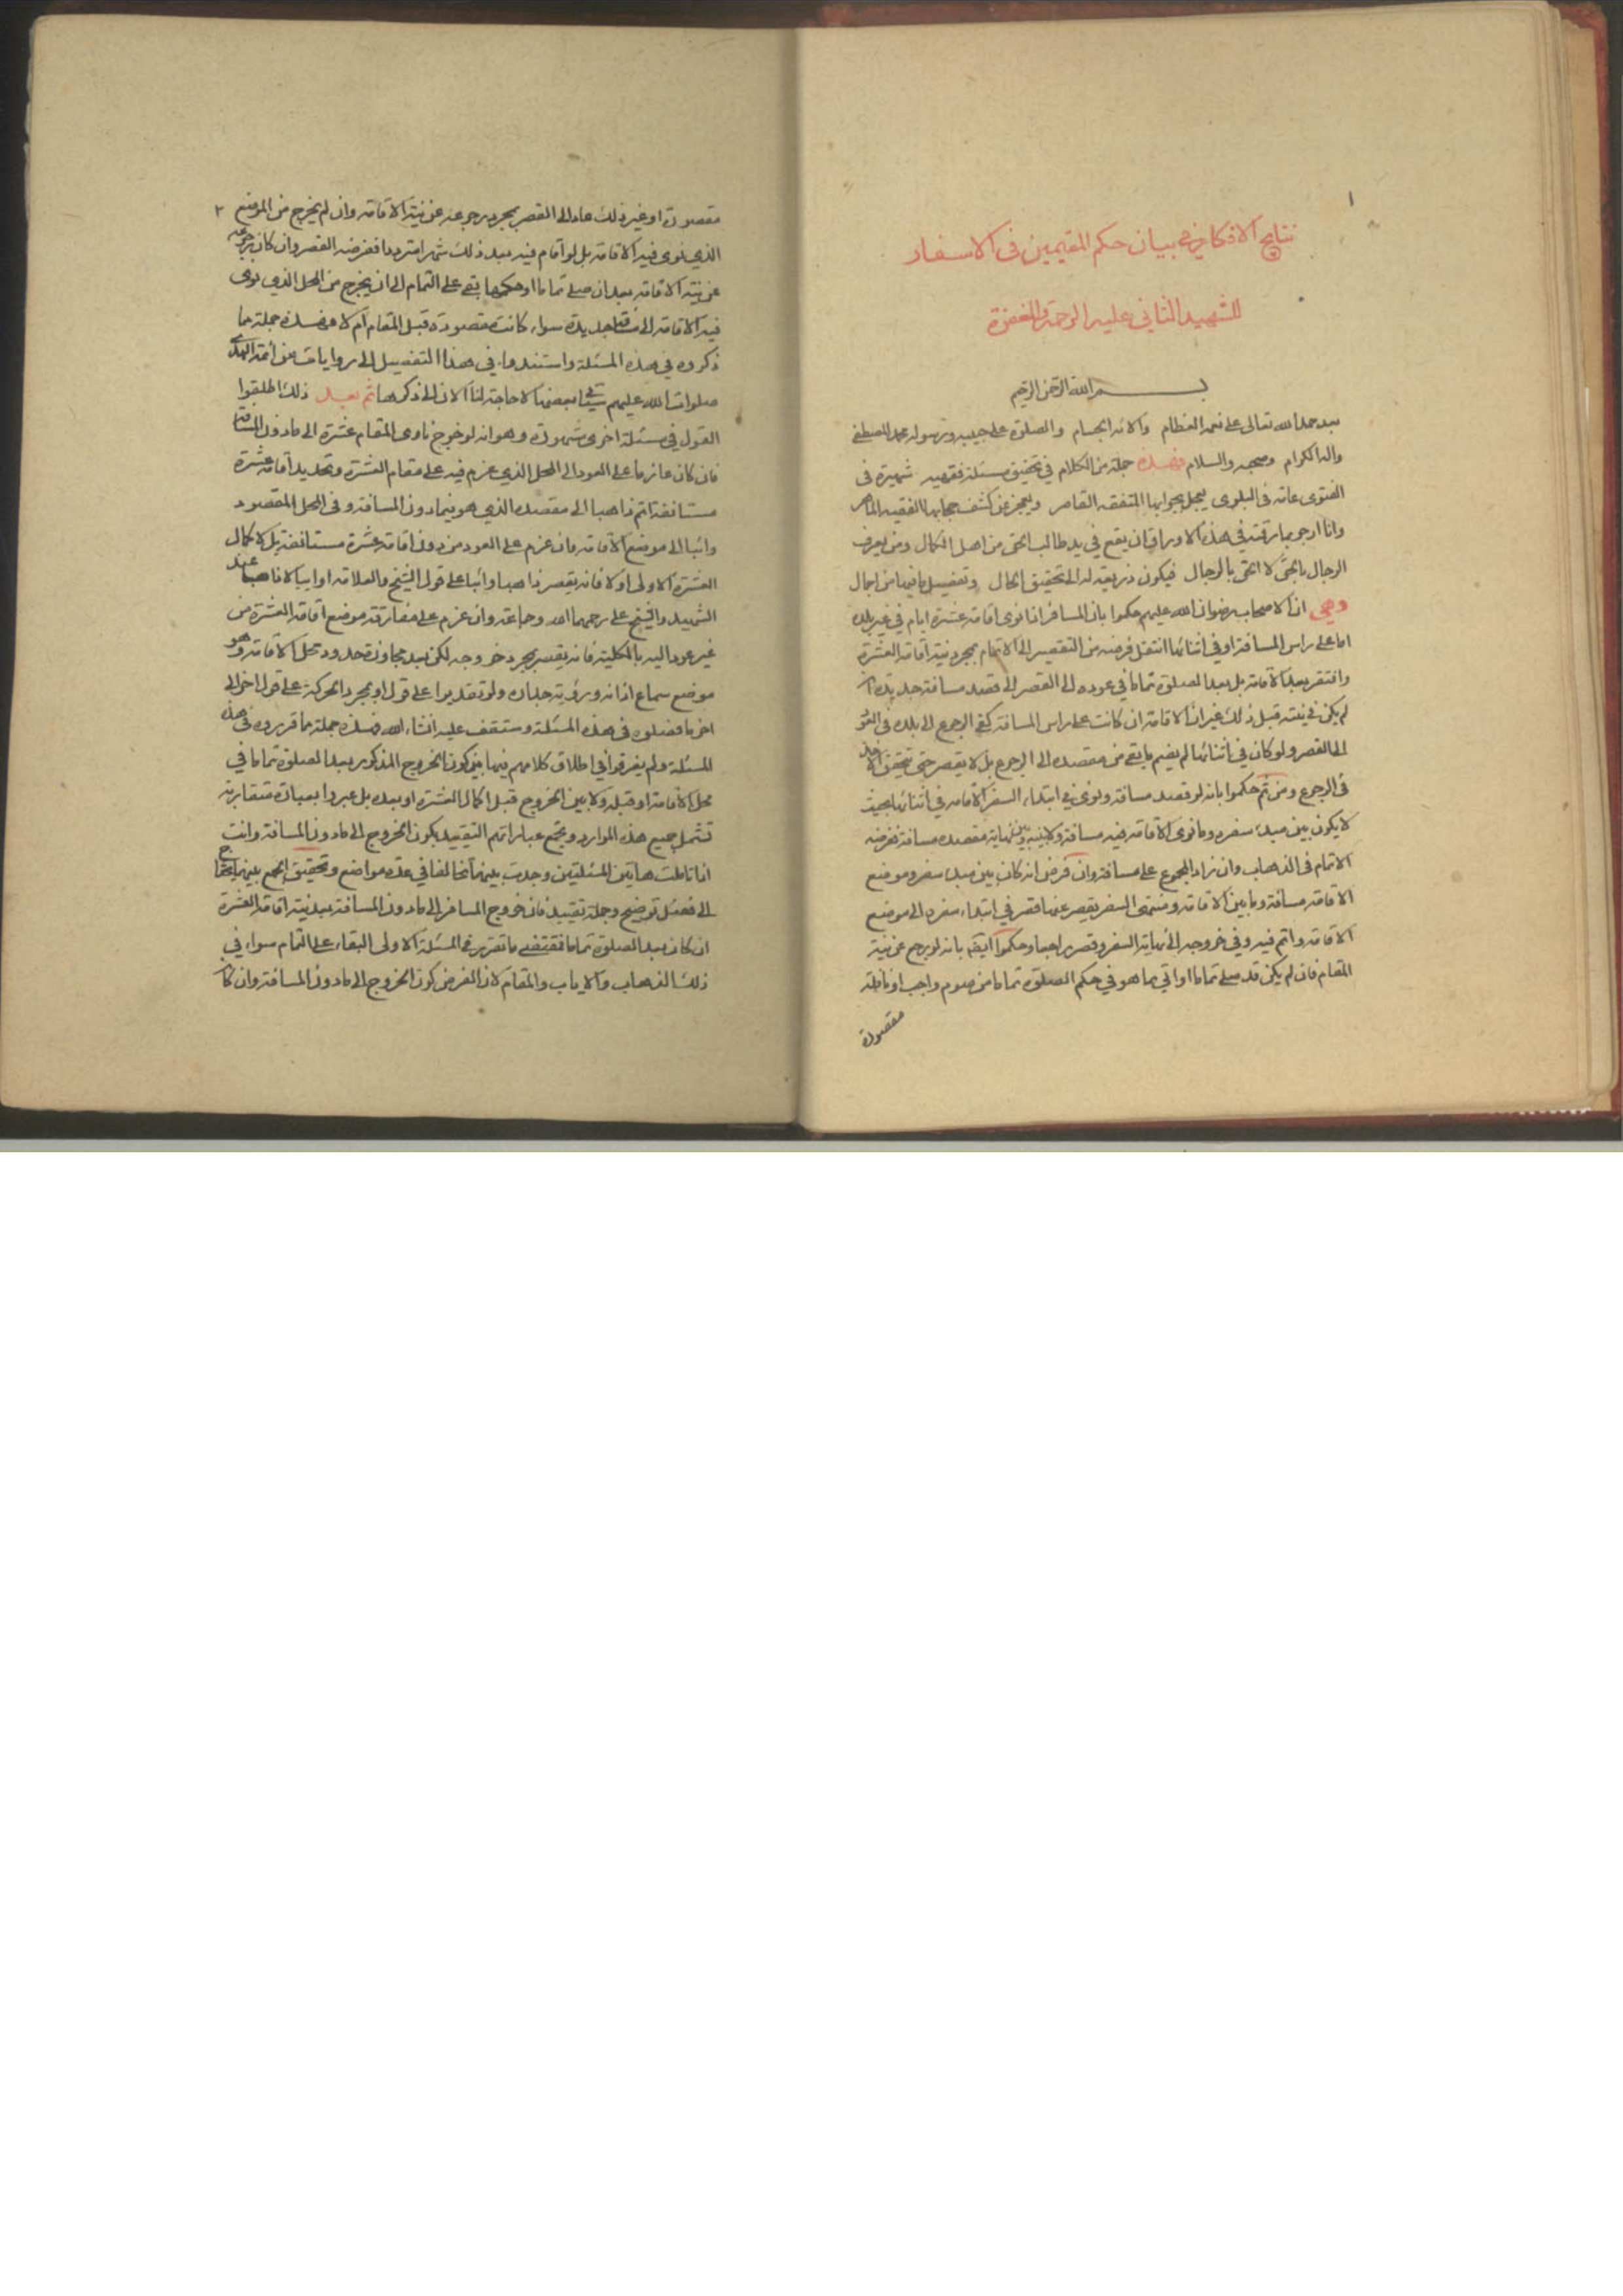 ١
نتايج الافكار في بيان حكم المقيمين في الاسفار
للشهيد الثاني عليه الرحمة والمغفرة
بسم الله الرحمن الرحيم
بعد حمد الله تعالى على نعمه العظام والائه الجسام والصلوة على حبيبه ورسوله محمد المصطفى
واله الكرام وصحبه والسلام فهذه جملة من الكلام في تحقيق مسئلة فقهيه شهيرة في
الفتوى عامة في البلوى يعجل بجوابها المتفقه القاصر ويعجز عن كشف حجابها الفقيه الماهر
وانا ارجو بما رقمته في هذه الاوراق ان يقع في يد طالب الحق من اهل الكمال ومن يعرف
الرجال بالحق لا الحق بالرجال فيكون ذريعة له الى تحقيق الحال وتفصيل ما فيها من اجمال
وهي ان الاصحاب رضوان الله عليهم حكموا بان المسافر اذا نوى اقامة عشرة ايام في غير بلده
اما على راس المسافة او في اثنائها انتقل فرضه من التقصير الى الاتمام بمجرد نية اقامة العشرة
وافتقر بعد الاقامة بل بعد الصلوة تماما في عوده الى القصر الى قصد مسافة جديدة
لم يكن في نيته قبل ذلك غير ان الاقامة ان كانت على راس المسافة كفى الرجوع الى بلده في العود
الى القصر ولو كان في اثنائها لم يضم ما بقي من مقصده الى الرجوع بل لا يقصر حتى تتحقق
في الرجوع ومن ثم حكموا بانه لو قصد مسافة ونوى في ابتداء السفر الاقامة في اثنائها بحيث
لا يكون بين مبدء سفره وما نوى الاقامة فيه مسافة ولا بينه وبين نهاية مقصده مسافة ففرضه
الاتمام في الذهاب وان زاد المجموع على مسافة وان فرض انه كان بين مبدء سفره وموضع
الاقامة مسافة وما بين الاقامة ومنتهى السفر يقصر عنها قصر في ابتداء سفره الى موضع
الاقامة واتم فيه وفي خروجه الى نهاية السفر وقصر راجعا وحكموا ايضا بانه لو رجع عن نية
المقام فان لم يكن قد صلى تماما او اتى بما هو في حكم الصلوة تماما من صوم واجب او نافلة
مقصورة
٢
مقصورة او غير ذلك عاد الى القصر بمجرد رجوعه عن نية الاقامة وان لم يخرج من الموضع
الذي نوى فيه الاقامة بل لو اقام فيه بعد ذلك شهرا مترددا ففرضه القصر وان كان رجوعه
عن نية الاقامة بعد ان صلى تماما او حكمها بقي على التمام الى ان يخرج من المحل الذي نوى
فيه الاقامة الى مسافة جديدة سواء كانت مقصودة قبل المقام ام لا فهذه جملة ما
ذكروه في هذه المسئلة واستندوا في هذا التفصيل الى روايات عن ائمة الهدى
صلوات الله عليهم سياتي بعضها لا حاجة لنا الان الى ذكرها ثم بعد ذلك اطلقوا
القول في مسئلة اخرى مشهورة وهو انه لو خرج ناوى المقام عشرة الى ما دون المسافة
فان كان عازما على العود الى المحل الذي عزم فيه على مقام العشرة وتجديد اقامة عشرة
مستانفة اتم ذاهبا الى مقصده الذي هو فيما دون المسافة وفي المحل المقصود
وائبا الى موضع الاقامة وان عزم على العود من دون اقامة عشرة مستانفة بل لاكمال
العشرة الاولى او لا فانه يقصر ذاهبا وائبا على قول الشيخ والعلامة او ايبا لا ذاهبا عند
الشهيد والشيخ على رحمهما الله وجماعة وان عزم على مفارقة موضع اقامة العشرة من
غير عود اليه بالكلية فانه يقصر بمجرد خروجه لكن بعد مجاوزة حدود محل الاقامة وهو
موضع سماع اذانه ورؤية جدرانه ولو تقديرا على قول او بمجرد الحركة على قول اخر الى
اخر ما فصلوه في هذه المسئلة وستقف عليه انشاء الله فهذه جملة ما قرروه في هذه
المسئلة ولم يفرقوا في اطلاق كلامهم فيها بين كون الخروج المذكور بعد الصلوة تماما في
محل الاقامة او قبله ولا بين الخروج قبل اكمال العشرة او بعده بل عبروا بعبارة متقاربة
تشمل جميع هذه الموارد وبجميع عباراتهم التقييد بكون الخروج الى ما دون المسافة وانت
اذا تاملت هاتين المسئلتين وجدت بينهما تخالفا في عدة مواضع وتحقيق الجمع بينهما يحتاج
الى فضل توضيح وجملة تقييد فان خروج المسافر الى ما دون المسافة بعد نية اقامة العشرة
ان كان بعد الصلوة تماما فمقتضى ما تقرر في المسئلة الاولى البقاء على التمام سواء في
ذلك الذهاب والاياب والمقام لان الفرض كون الخروج الى ما دون المسافة وان كان